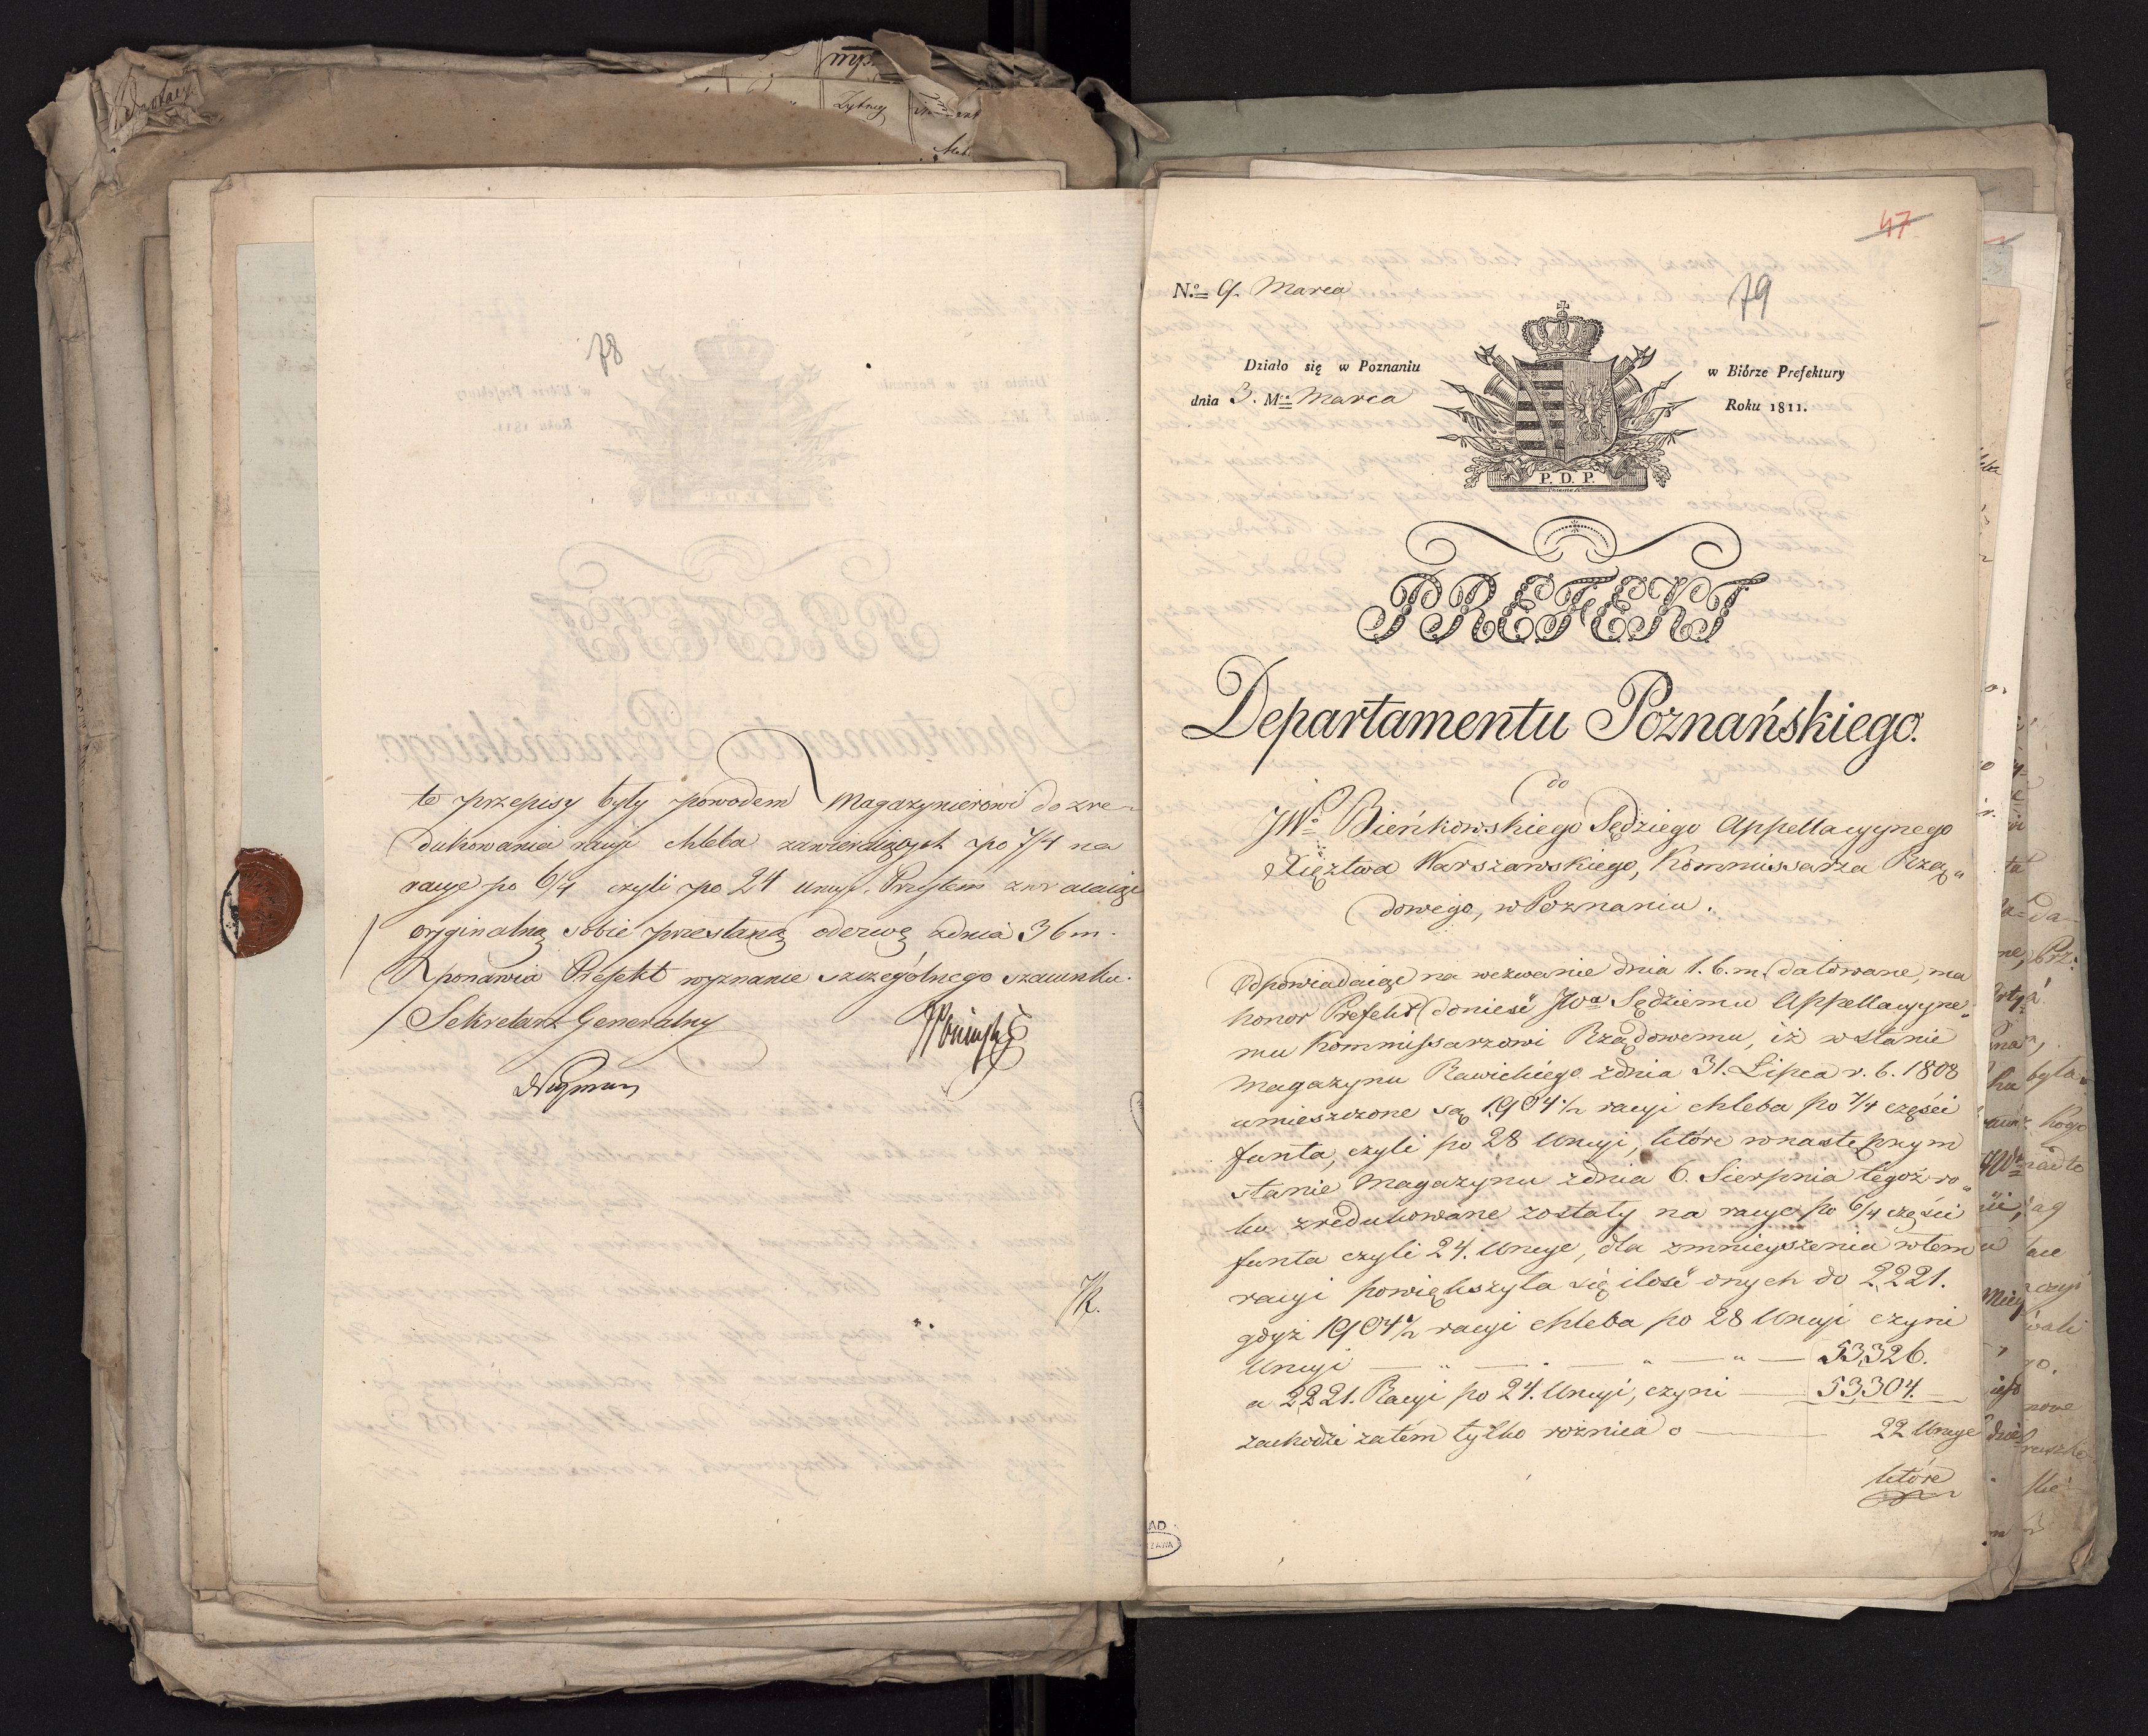 78
te przepisy były powodem Magazynierowi do zre-
dukowania racyi chleba zawieraiących po 7/4 na
racye po 6/4 czyli po 24 Uncyi. Przytem zwracaiąc
oryginalną sobie przesłaną odezwę zdnia 3 b m.
ponawia Prefekt wyznanie szczególnego szacunku.
Sekretarz Generalny
47
79
N.o 9. Marca
Działo się w Poznaniu
w Biórze Prefektury
dnia 3. Mca Marca
Roku 1811.
P. D. P.
PREFEKT
Departamentu Poznańskiego.
do
JWo Bieńkowskiego Sędziego Appellacyynego
Xięztwa Warszawskiego, Kommissarza Rzą„
dowego, w Poznaniu.
Odpowiadaiąc na wezwanie dnia 1. b. m. datowane, ma
honor Prefekt donieść JWu Sędziemu Appellacyyne„
mu Kommissarzowi Rządowemu, iż w stanie
Magazynu Rawickiego zdnia 31. Lipca r. b. 1808
umieszczone są 1904½ racyi chleba po 7/4 części
funta, czyli po 28 Uncyi, które w następnym
stanie Magazynu zdnia 6. Sierpnia tegoż ro„
ku zredukowane zostały na racye po 6/4 części
funta czyli 24. Uncye, dla zmnieyszenia wtem
racyi powiększyła się ilość onych do 2,221.
gdyż 1904½ racyi chleba po 28 Uncyi czyni
Uncyi — „ — „ — „ — „ — 53,326.
a 2,221. Racyi po 24. Uncyi, czyni — 53,304.
zachodzi zatém tylko różnica o — 22 Uncye
które